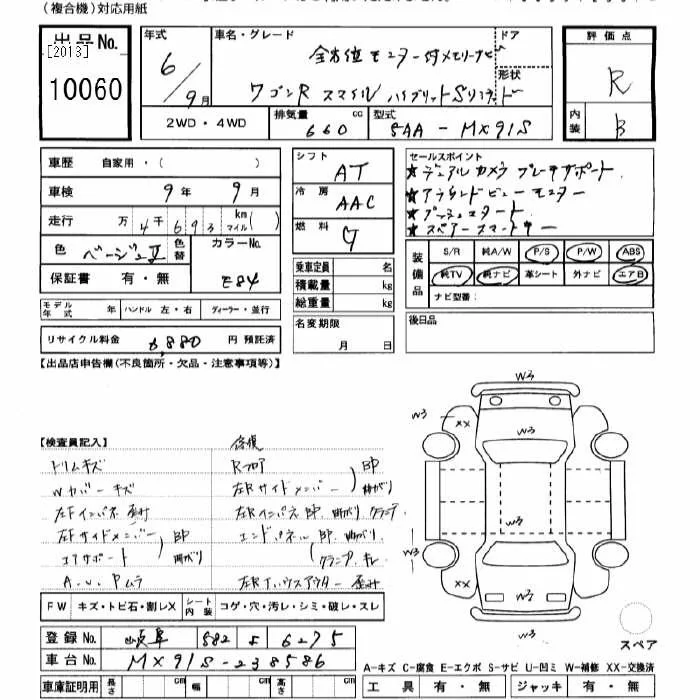 (複合機)対応用紙
出品No.
[2013]
10060
年式
6/9月
車名・グレード
全方位モニター付メモリーナビ
ワゴンR スマイル ハイブリッドSリミテッド
ドア
形状
評価点
R
内装
B
2WD・4WD
排気量
660 cc
型式
5AA-MX91S
車歴 自家用・( )
車検 9年 9月
走行 万 4千693 km マイル( )
色 ベージュⅡ
色替
カラーNo.
E84
保証書 有・無
モデル年式 年
ハンドル 左・右
ディーラー・並行
リサイクル料金 6,880 円 預託済
シフト AT
冷房 AAC
燃料 G
乗車定員 名
積載量 kg
総重量 kg
名変期限
月 日
セールスポイント
★デュアルカメラブレーキサポート
★アラウンドビューモニター
★プッシュスタート
★スペアースマートキー
装備品
S/R 純A/W P/S P/W ABS
純TV 純ナビ 革シート 外ナビ エアB
ナビ型番:
後日品
【出品店申告欄(不良箇所・欠品・注意事項等)】
【検査員記入】
修復
トリムキズ
R フロア
Wカバーキズ
左Rサイドメンバー
BP
曲がり
左Fインパネ 歪み
左Rインパネ BP 曲がり クランプ
左Fサイドメンバー
BP
曲がり
エンドパネル BP 曲がり
コアサポート
クランプ キレ
A.U.Pムラ
左Rタイハウスアウター 歪み
FW キズ・トビ石・割レX
シート内装 コゲ・穴・汚レ・シミ・破レ・スレ
登録No. 岐阜 582 よ 6275
車台No. MX91S-238586
車庫証明用 長さ cm 幅 cm 高さ cm
W3
W3
XX
W3
W3
W3
XX
W2
W3
スペア
A-キズ C-腐食 E-エクボ S-サビ U-凹ミ W-補修 XX-交換済
工具 有・無 ジャッキ 有・無